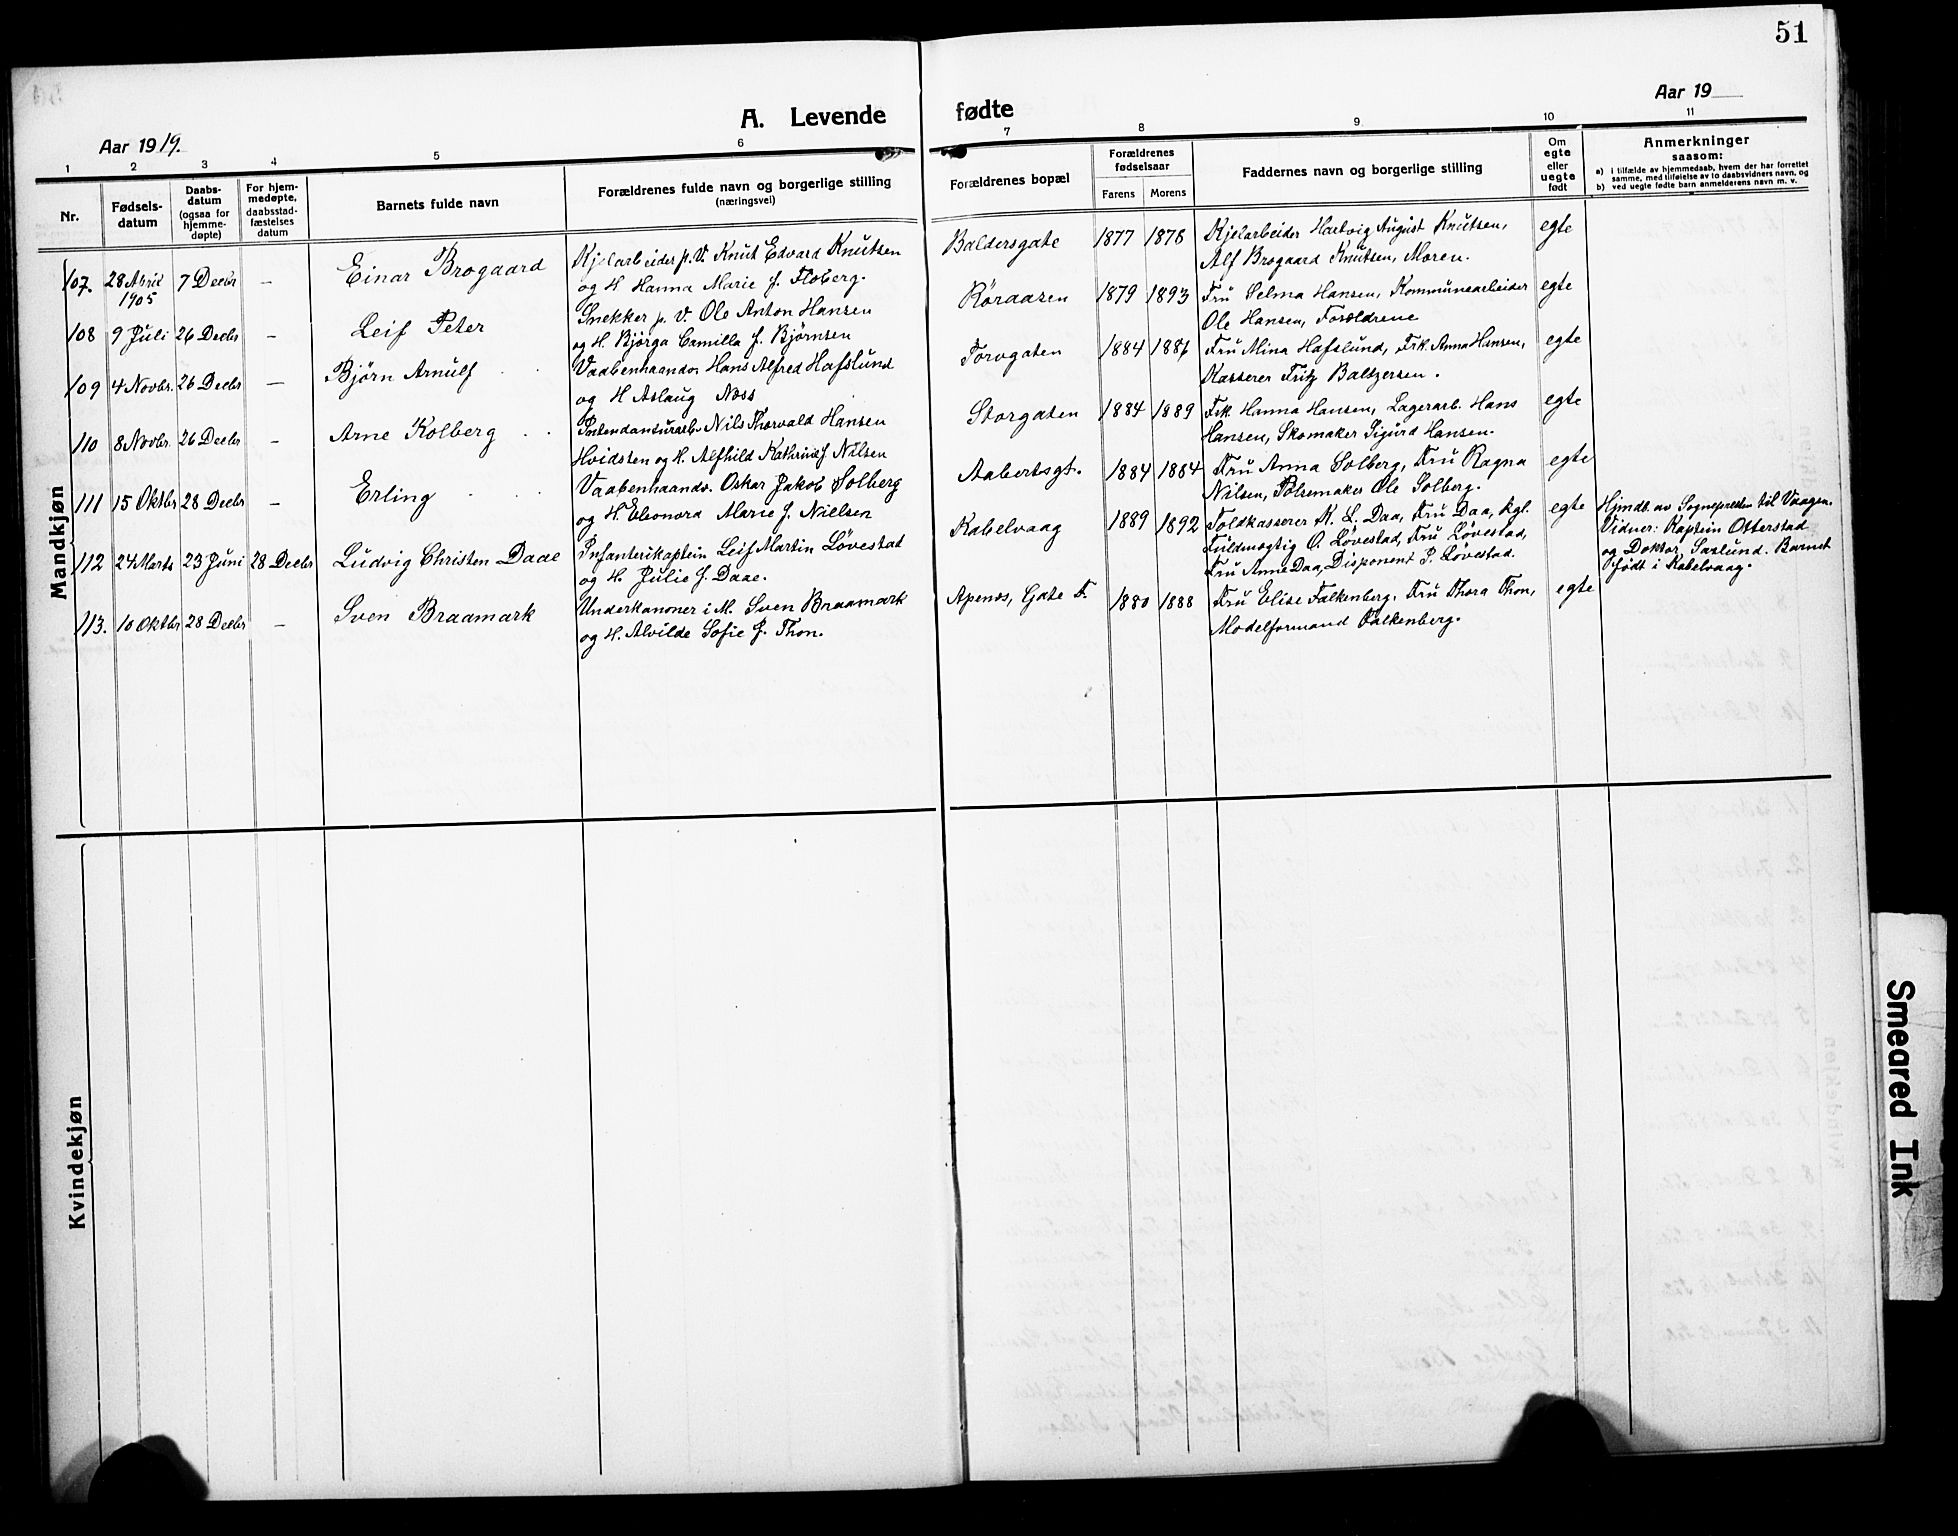 51
A. Levende fødte
Aar 1919.
Aar 19
1 2 3 4 5 6 7 8 9 10 11
Nr.
Fødsels-
datum
Daabs-
datum
(ogsaa for
hjemme-
døpte)
For hjem-
medøpte,
daabsstad-
fæstelses
datum
Barnets fulde navn
Forældrenes fulde navn og borgerlige stilling
(næringsvei)
Forældrenes bopæl
Forældrenes
fødselsaar
Farens Morens
Faddernes navn og borgerlige stilling
Om
egte
eller
uegte
født
Anmerkninger
saasom:
a) i tilfælde av hjemmedaab, hvem der har forrettet
samme, med tilføielse av to daabsvidners navn, og
b) ved uegte fødte barn anmelderens navn m. v.
Mandkjøn
107. 28 April 7 Decbr — Einar Brogaard
1905
Kjølarbeider p. V. Knut Edvard Knutsen
og H. Hanna Marie f. Floberg.
Baldersgate 1877 1878
Kjølarbeider Hartvig August Knutsen,
Alf Brogaard Knutsen, Moren.
egte
108 9 Juli 26 Decbr — Leif Peter
Snekker p. V. Ole Anton Hansen
og H. Bjørga Camilla f. Bjørnsen
Røraasen 1879 1893
Fru Selma Hansen, Kommunearbeider
Ole Hansen, Forældrene
egte
109 4 Novbr. 26 Decbr — Bjørn Arnulf
Vaabenhaandv. Hans Alfred Hafslund
og H Aslaug Næss
Torvgaten 1884 1886
Fru Mina Hafslund, Frk. Anna Hansen,
Kasserer Fritz Baltzersen.
egte
110 8 Novbr. 26 Decbr — Arne Kolberg
Intendanturarb. Nils Thorvald Hansen
Hvidsten og H. Alfhild Kathrine f Nilsen
Storgaten 1884 1889
Frk. Hanna Hansen, Lagerarb. Hans
Hansen, Skomaker Sigurd Hansen.
egte
111 15 Oktbr 28 Decbr — Erling
Vaabenhaandv. Oskar Jakob Solberg
og H. Eleonora Marie f. Nielsen
Aabertsgt. 1884 1884
Fru Anna Solberg, Fru Ragna
Nilsen, Pølsemaker Ole Solberg.
egte
112 24 Marts 23 Juni 28 Decbr Ludvig Christen Daae
Infanterikaptein Leif Martin Løvestad
og H. Julie f. Daae.
Kabelvaag 1889 1892
Toldkasserer K. L. Daa, Fru Daa, Kgl.
Fuldmægtig O. Løvestad, Fru Løvestad,
Fru Anne Daa, Disponent P. Løvestad.
egte
Hjmdt. av Sognepresten til Vaagen.
Vidner: Kaptein Otterstad
og Doktor Saxlund. Barnet
født i Kabelvaag.
113. 10 Oktbr 28 Decbr — Sven Braamark
Underkanoner i M. Sven Braamark
og H. Alvilde Sofie f. Thon.
Apenæs, Gate F. 1880 1888
Fru Elise Falkenberg. Fru Thora Thon,
Modelformand Falkenberg.
egte
Kvindekjøn
Smeared Ink